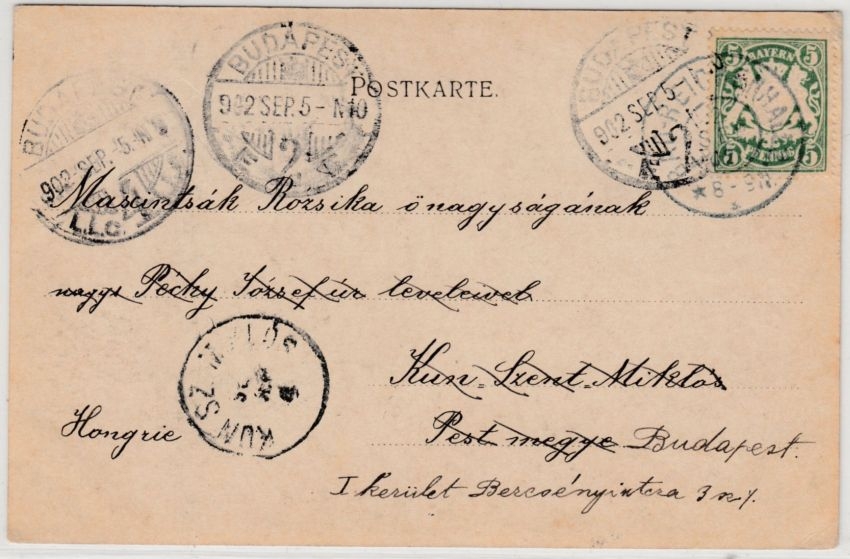 POSTKARTE.
BUDAPEST
902 SEP. 5 - N10
BUDAPEST
902 SEP. 5 -
BUDAPEST
902 SEP. 5
BAYERN
5 5
5 5
Maxintsák Rozsika önagyságának
nagys Péchy József úr leveleivel
Kun-Szent-Miklós
Hongrie
Pest megye Budapest.
I kerület Bercsényiutcza 3 sz.
KUN SZ. MIKLÓS